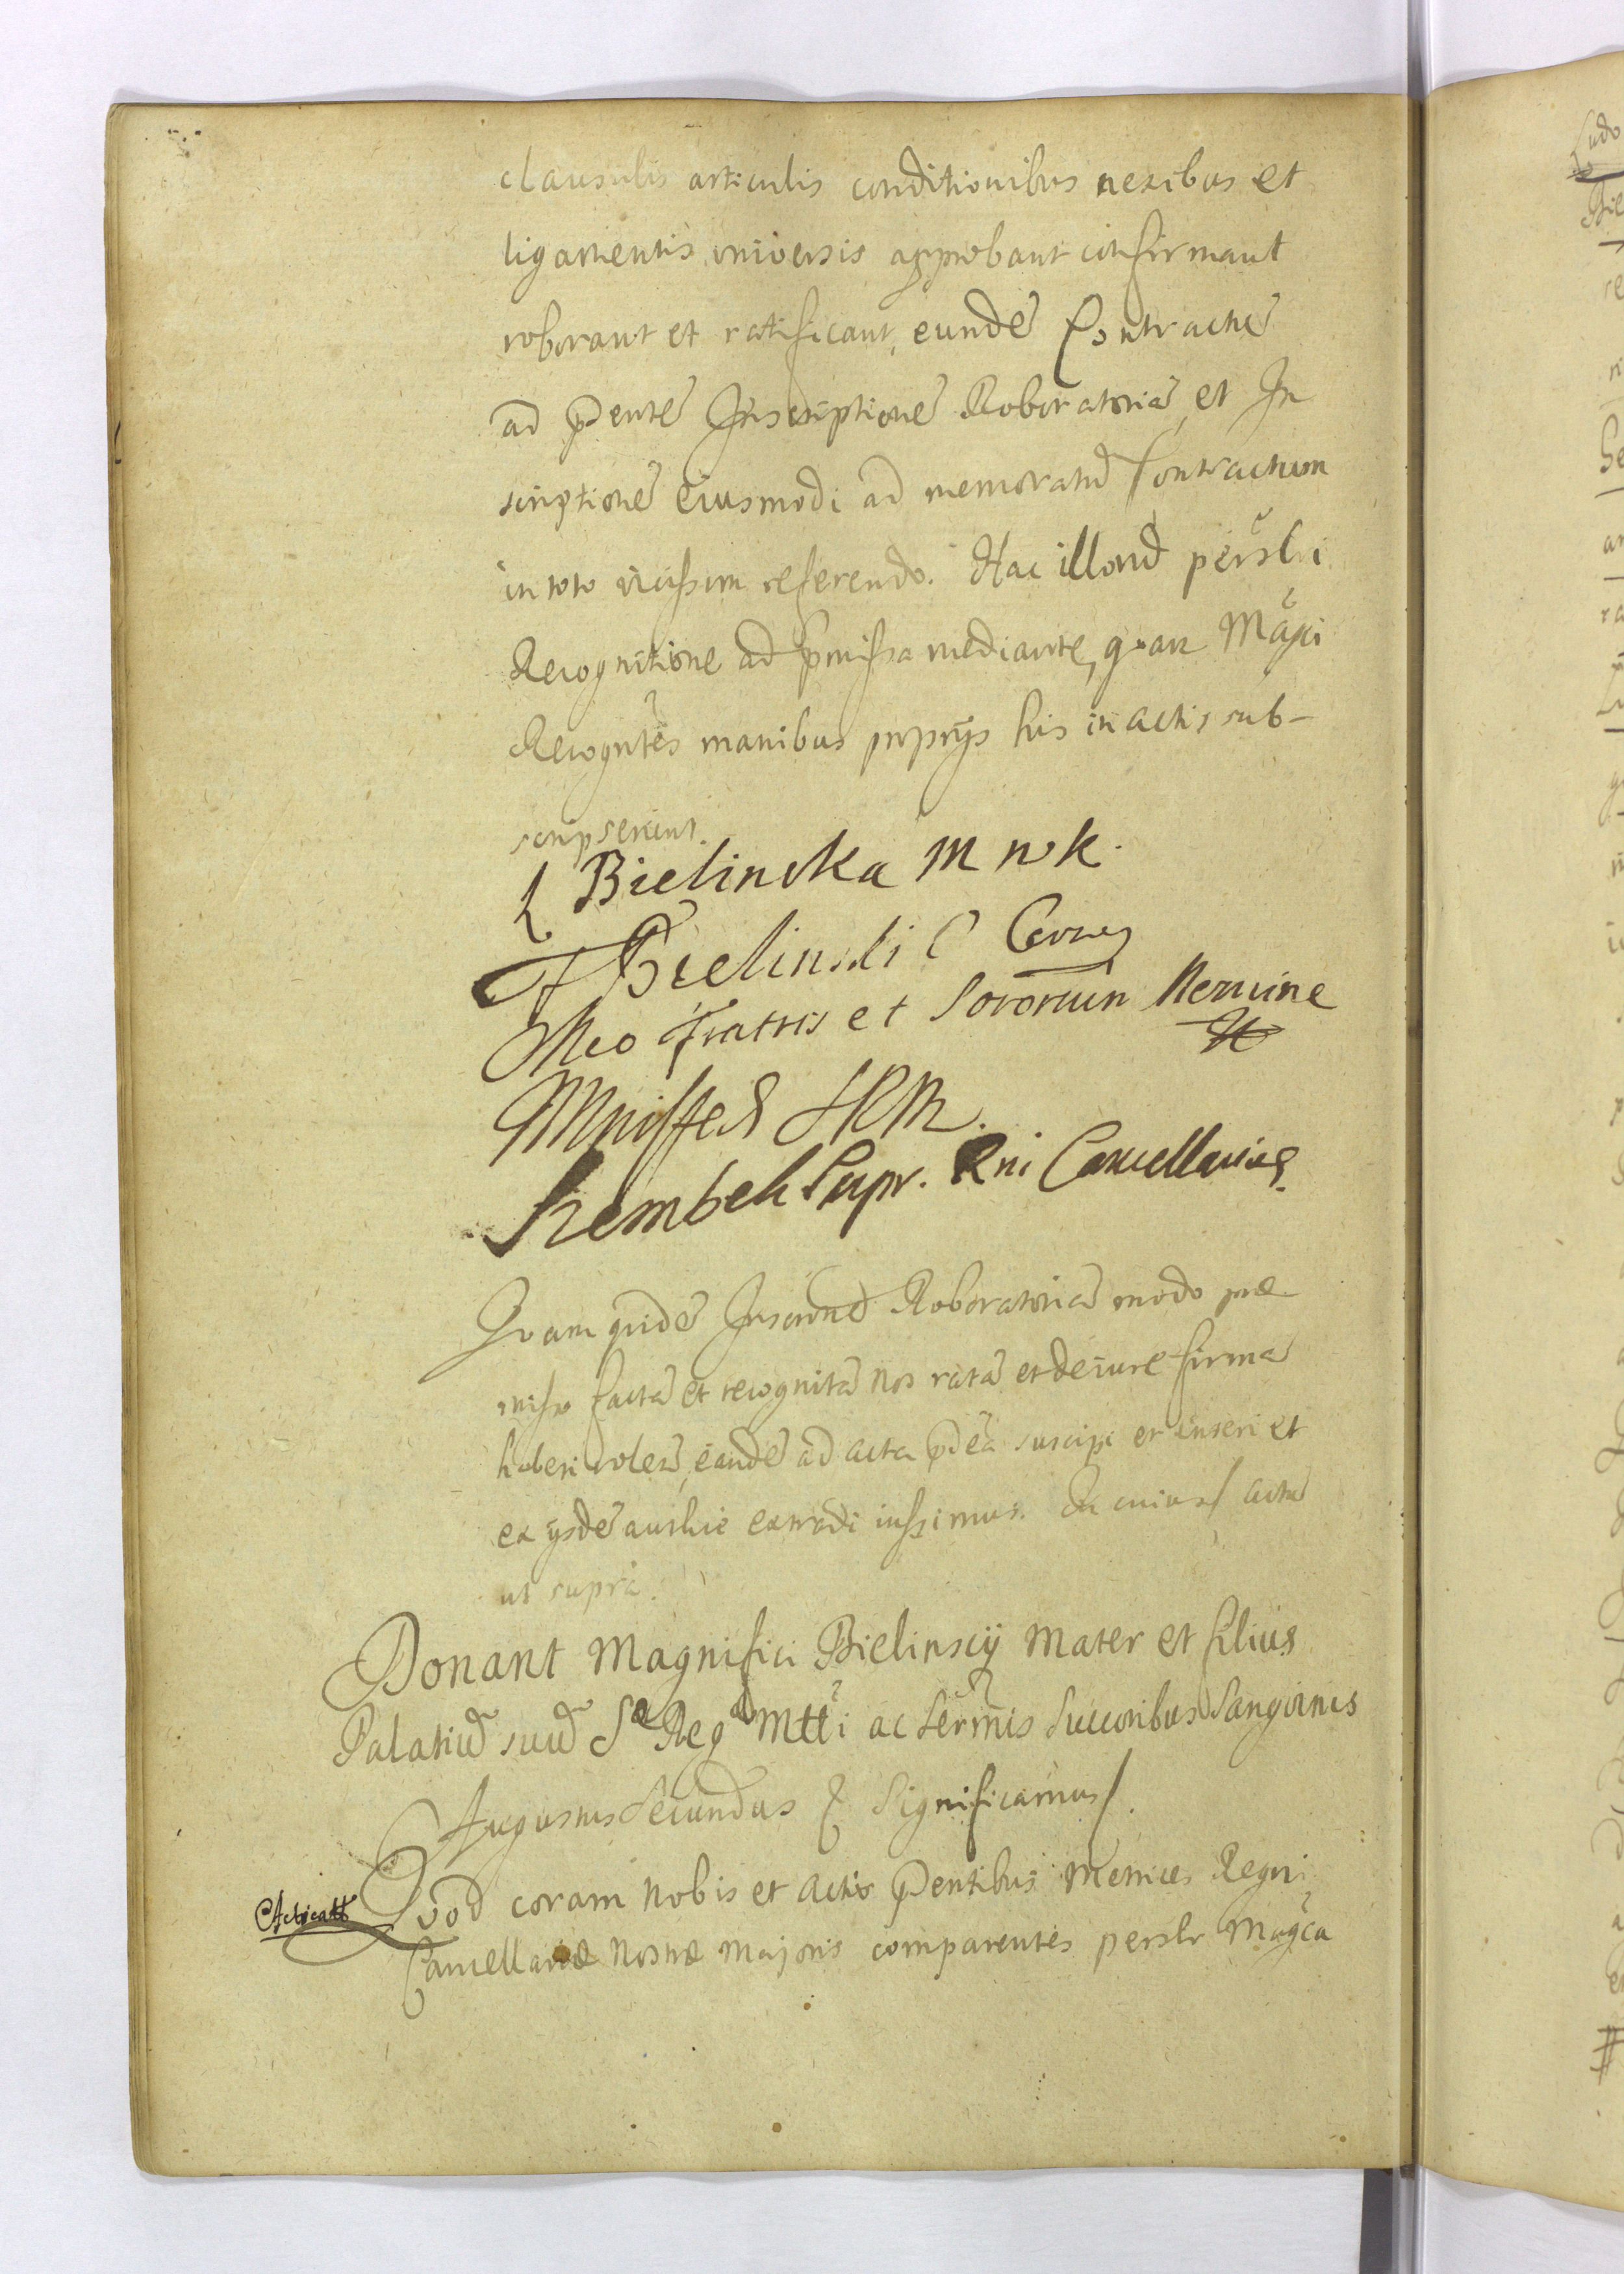 clausulis articulis conditionibus nexibus et
ligamentis universis approbant confirmant
roborant et ratificant, eundē Contractū
ad p̄entē Inscriptionē Roboratoriā et In
scriptionē eiusmodi ad memoratū Contractum
in toto vicissim referendo. Hac illorū persłi
Recognitione ad p̄missa mediante, quam Mag̃ci
Recogn̄tes manibus proprijs his in Actis sub-
scripserunt.
Bielinska M W K
Bielinski C
Meo Fratris et Sororum Nomine
Mniszech
Szembek Supr. Rni Cancellarius.
Quam quidē Inscr̄onē Roboratoriā modo præ-
misso factā et recognitā Nos ratā et de iure firmā
haberi volen̄, eandē ad acta p̄d̄ca suscipi et inseri et
ex ijsdē authēe extradi iussimus. In cuius/ Actū
ut supra.
Donant Magnifici Bielinscij Mater et filius
Palatiū suū Sᵃ Regᵃ Mtti ac Ser̄mis Succ̄oribus Sangvinis
Augustus Secundus & Significamus/.
Quod coram Nobis et Actis p̄entibus Metrices Regni
Cancellariæ Nostræ Majoris comparentes persłr Mag̃ca